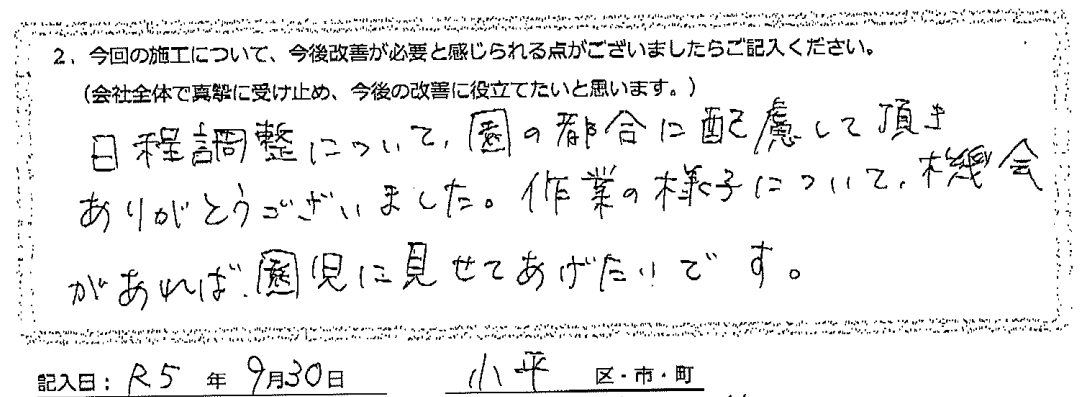 2. 今回の施工について、今後改善が必要と感じられる点がございましたらご記入ください。
(会社全体で真摯に受け止め、今後の改善に役立てたいと思います。)
日程調整について、園の都合に配慮して頂き
ありがとうございました。作業の様子について、機会
があれば、園児に見せてあげたいです。
記入日: R5 年 9月30日 小平 区・市・町